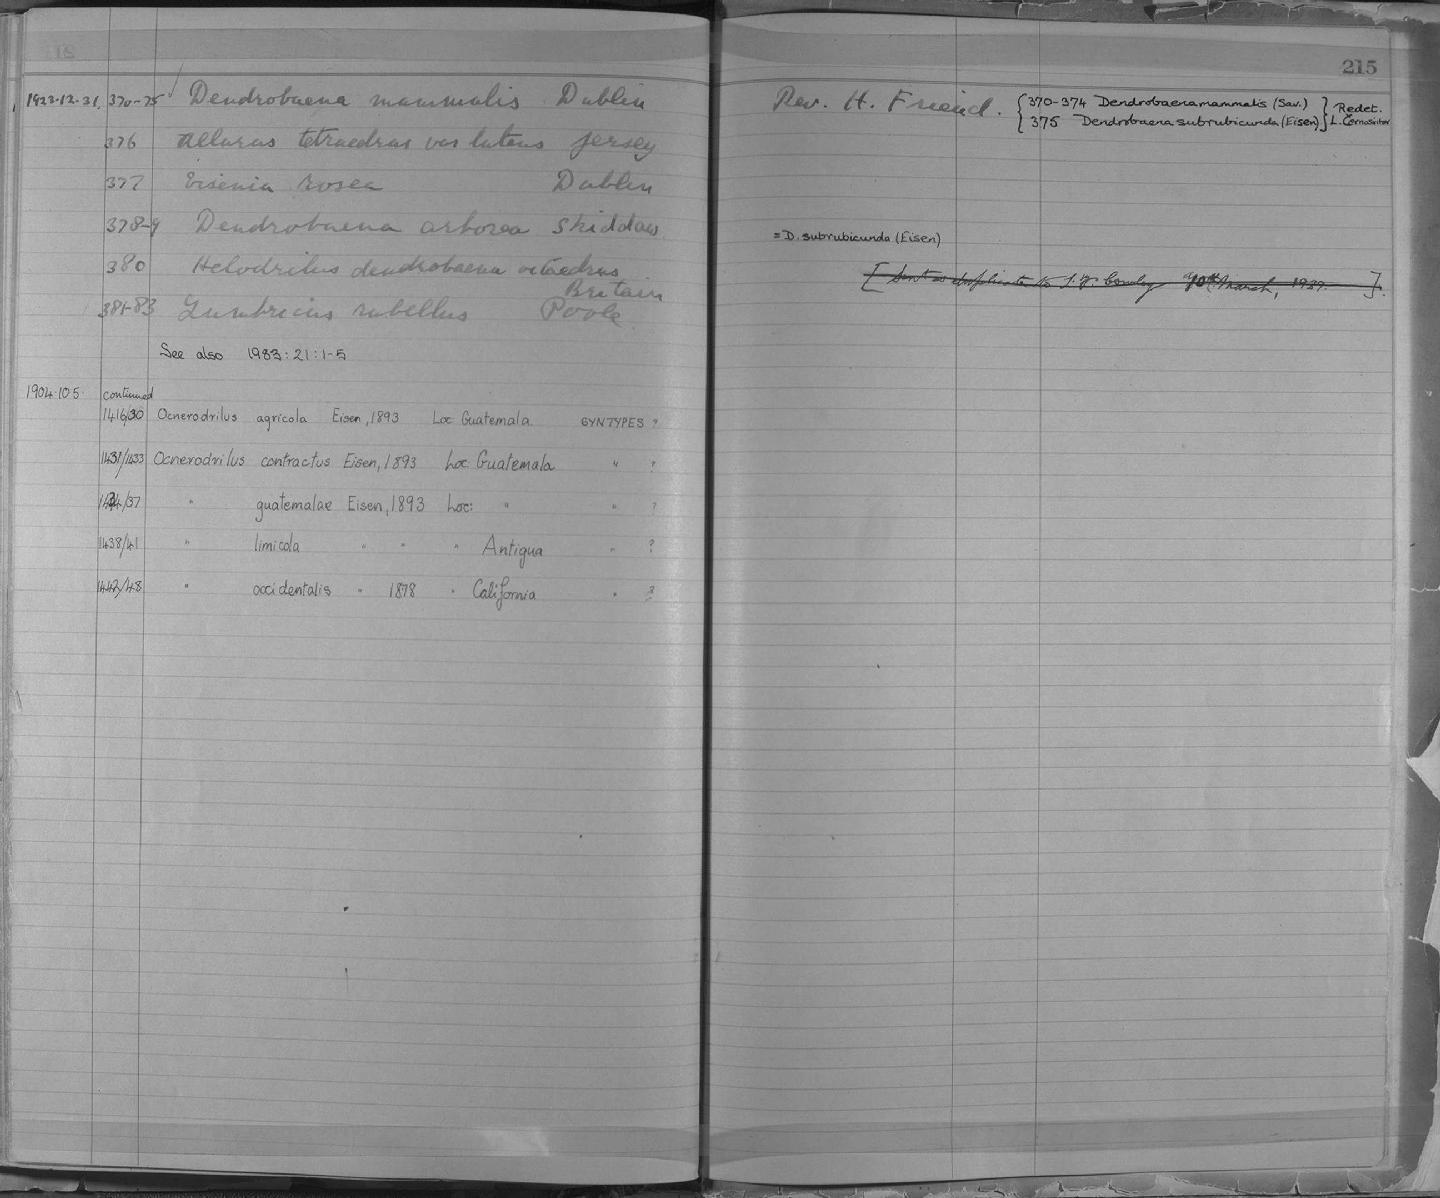 215
1923.12.31. 370-75 Dendrobaena mammalis Dublin Rev. H. Friend. { 370-374 Dendrobaena mammalis (Sav.) } Redet.
375 Dendrobaena subrubicunda (Eisen) L. Černosvitov
376 Allurus tetraedrus var luteus Jersey
377 Eisenia rosea Dublin
378-9 Dendrobaena arborea Skiddaw
= D. subrubicunda (Eisen)
380 Helodrilus dendrobaena octaedrus
Britain
[Sent as duplicate to March, 1937.]
381-83 Lumbricus rubellus Poole
See also 1983:21:1-5
1904.10.5. continued
1416/30 Ocnerodrilus agricola Eisen, 1893 Loc Guatemala. SYNTYPES ?
1431/1433 Ocnerodrilus contractus Eisen, 1893 Loc: Guatemala " ?
1434/37 " guatemalae Eisen, 1893 Loc: " " ?
1438/41 " limicola " " " Antigua " ?
1442/48 " occidentalis " 1878 " California " ?